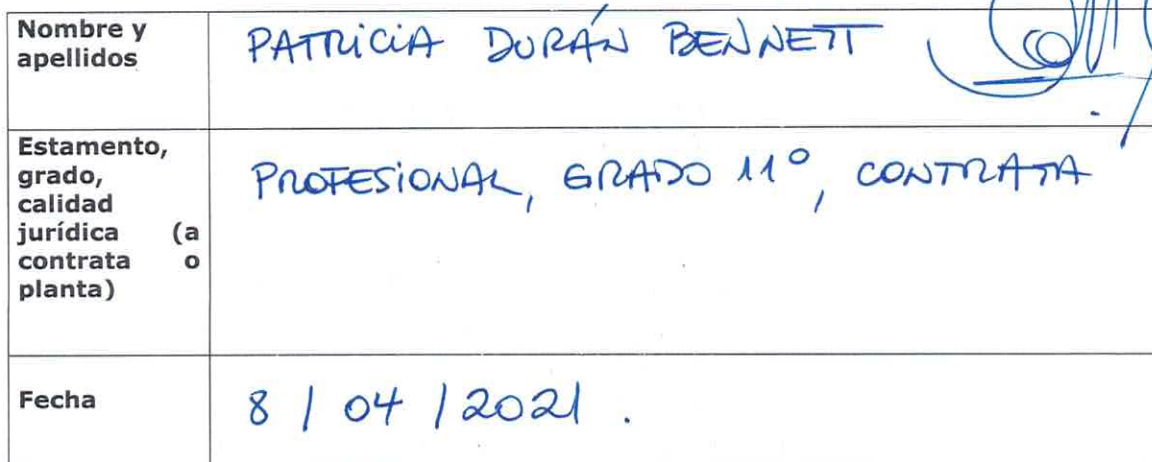 Nombre y
apellidos
PATRICIA DURÁN BENNETT
Estamento,
grado,
calidad
jurídica (a
contrata o
planta)
PROFESIONAL, GRADO 11°, CONTRATA
Fecha
8 / 04 / 2021 .